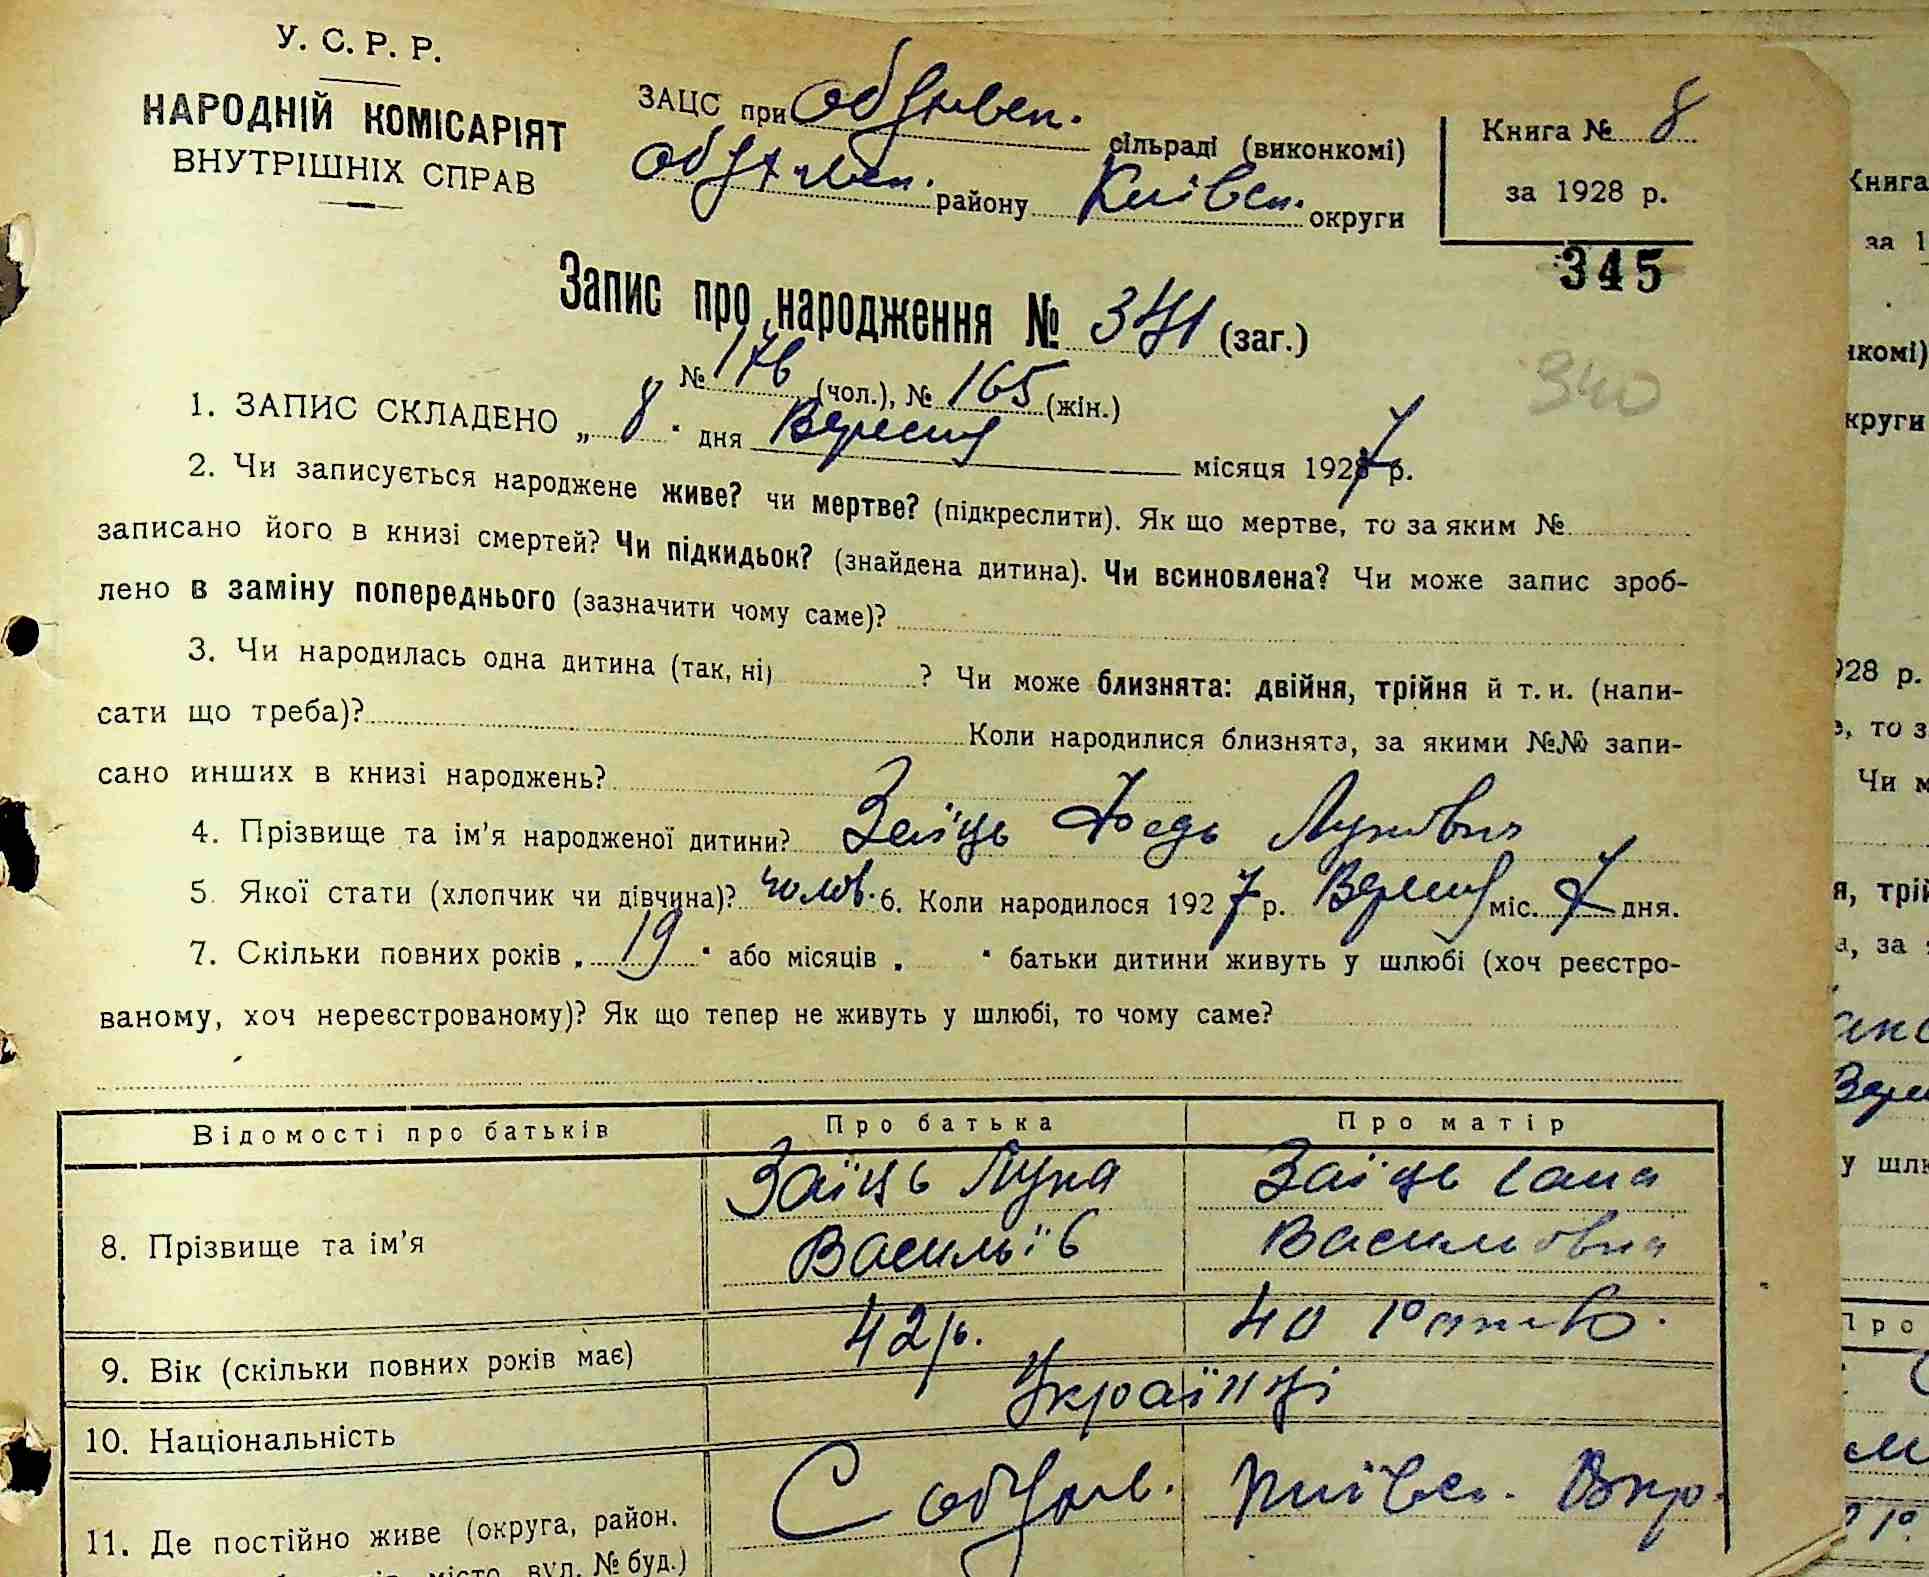 У. С. Р. Р.
НАРОДНІЙ КОМІСАРІЯТ
ВНУТРІШНІХ СПРАВ
ЗАЦС при Обухівен. сільраді (виконкомі)
Обухівен. району Київсн. округи
Книга № 8
за 1928 р.
345
Запис про народження № 341 (заг.)
№ 176 (чол.), № 165 (жін.)
340
1. ЗАПИС СКЛАДЕНО „ 8 " дня Вересня місяця 1927 р.
2. Чи записується народжене живе? чи мертве? (підкреслити). Як що мертве, то за яким №
записано його в книзі смертей? Чи підкидьок? (знайдена дитина). Чи всиновлена? Чи може запис зроб-
лено в заміну попереднього (зазначити чому саме)?
3. Чи народилась одна дитина (так, ні) ? Чи може близнята: двійня, трійня й т. и. (напи-
сати що треба)? Коли народилися близнята, за якими №№ запи-
сано инших в книзі народжень?
4. Прізвище та ім'я народженої дитини? Заїць Федь Лукович
5. Якої стати (хлопчик чи дівчина)? чолов. 6. Коли народилося 1927 р. Вересня міс. 7 дня.
7. Скільки повних років „ 19 " або місяців „ " батьки дитини живуть у шлюбі (хоч реєстро-
ваному, хоч нереєстрованому)? Як що тепер не живуть у шлюбі, то чому саме?
Відомості про батьків Про батька Про матір
8. Прізвище та ім'я Заїць Лука Васильїв Заїць Васильовна
9. Вік (скільки повних років має) 42 р. 40 років.
10. Національність Українці
11. Де постійно живе (округа, район, С Обухів. Київсн. Окр.
місто, вул. № буд.)